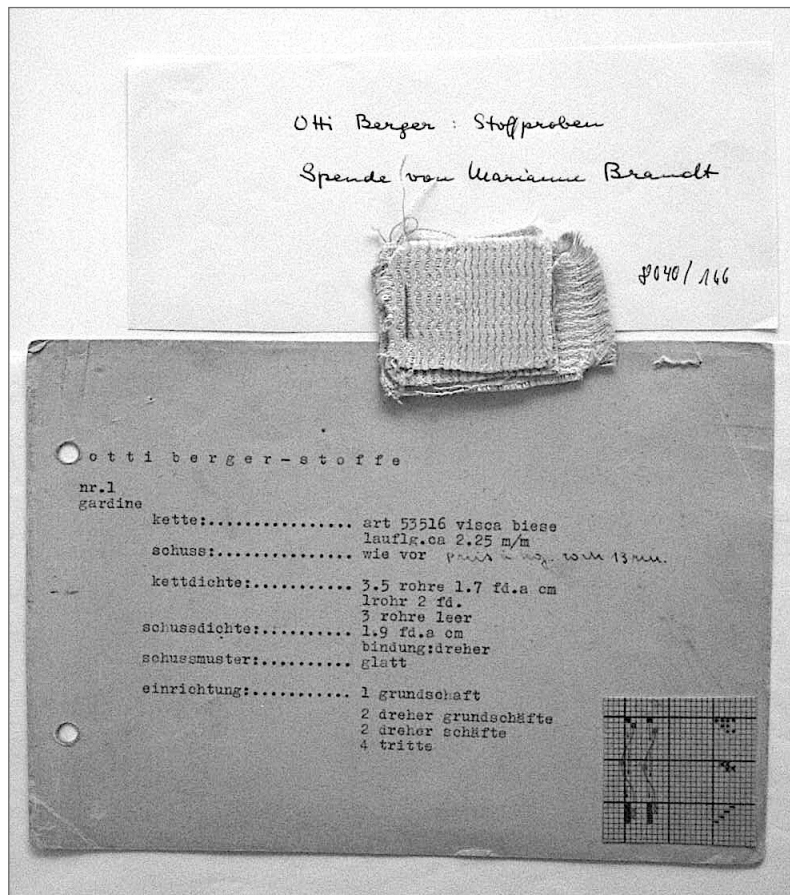 Otti Berger : Stoffproben
Spende von Marianne Brandt
8040/166
otti berger-stoffe
nr.1
gardine
kette:................ art 53516 visca biese
lauflg.ca 2.25 m/m
schuss:............... wie vor preis
kettdichte:........... 3.5 rohre 1.7 fd.a cm
1rohr 2 fd.
3 rohre leer
schussdichte:......... 1.9 fd.a cm
bindung:dreher
schussmuster:......... glatt
einrichtung:.......... 1 grundschaft
2 dreher grundschäfte
2 dreher schäfte
4 tritte